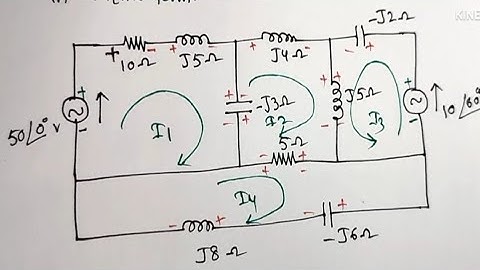 -J2Ω
KINE
+
10Ω
J5Ω
J4Ω
50∠0° v
I1
-J3Ω
I2
J5Ω
I3
10∠60°
5Ω
I4
J8Ω
-J6Ω